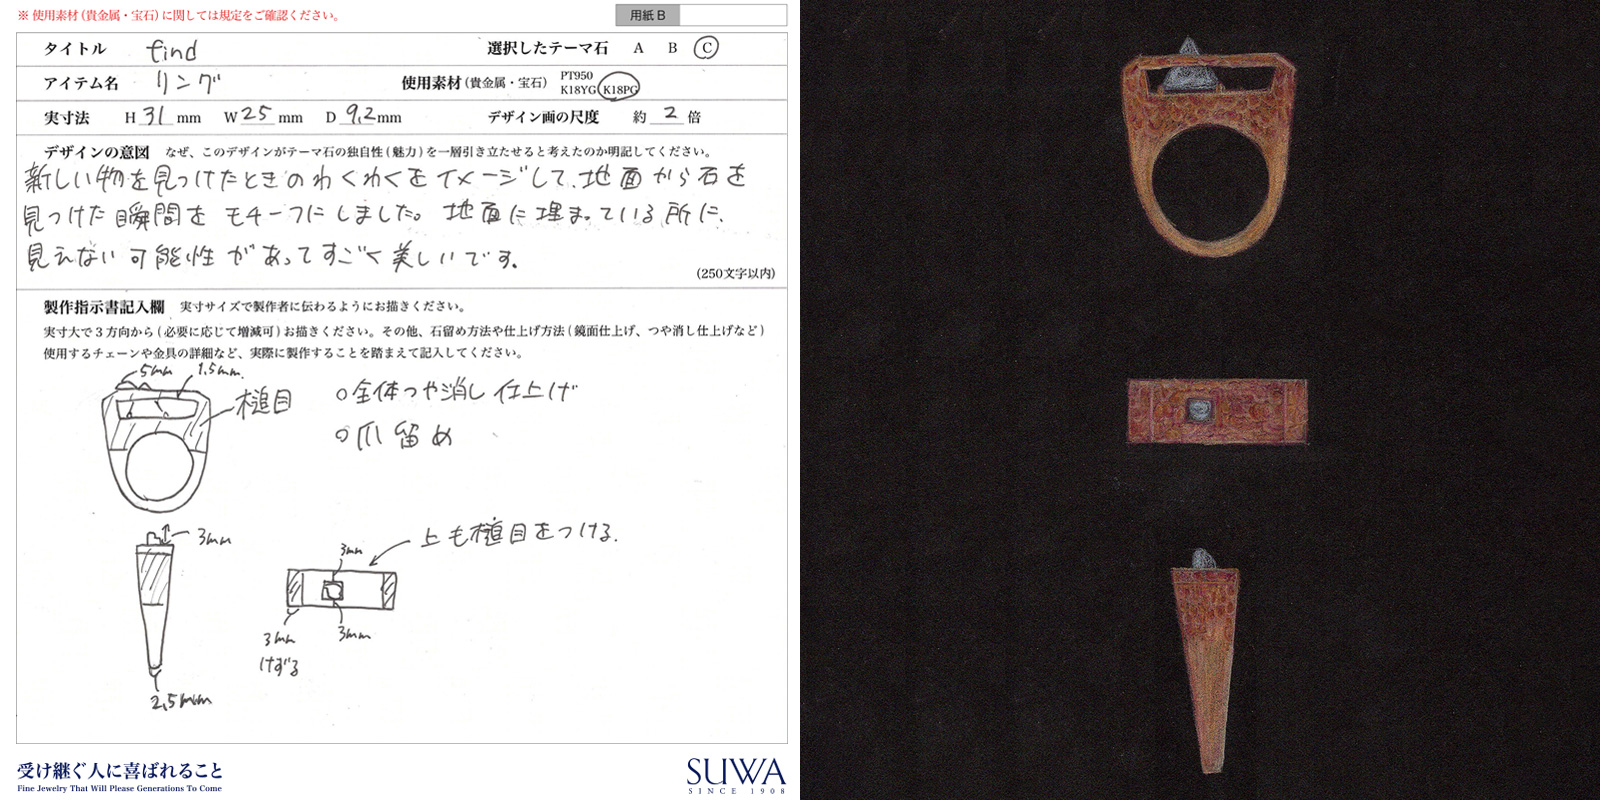 ※ 使用素材（貴金属・宝石）に関しては規定をご確認ください。
用紙 B
タイトル find 選択したテーマ石 A B C
アイテム名 リング 使用素材（貴金属・宝石） PT950 K18YG K18PG
実寸法 H 31 mm W 25 mm D 9.2 mm デザイン画の尺度 約 2 倍
デザインの意図 なぜ、このデザインがテーマ石の独自性（魅力）を一層引き立たせると考えたのか明記してください。
新しい物を見つけたときのわくわくをイメージして、地面から石を
見つけた瞬間をモチーフにしました。地面に埋まっている所に、
見えない可能性があってすごく美しいです。
（250文字以内）
製作指示書記入欄 実寸サイズで製作者に伝わるようにお描きください。
実寸大で3方向から（必要に応じて増減可）お描きください。その他、石留め方法や仕上げ方法（鏡面仕上げ、つや消し仕上げなど）
使用するチェーンや金具の詳細など、実際に製作することを踏まえて記入してください。
5mm 1.5mm
槌目
○全体つや消し仕上げ
○爪留め
3mm
上も槌目をつける.
3mm
3mm
3mm
けずる
2.5mm
受け継ぐ人に喜ばれること
Fine Jewelry That Will Please Generations To Come
SUWA
SINCE 1908